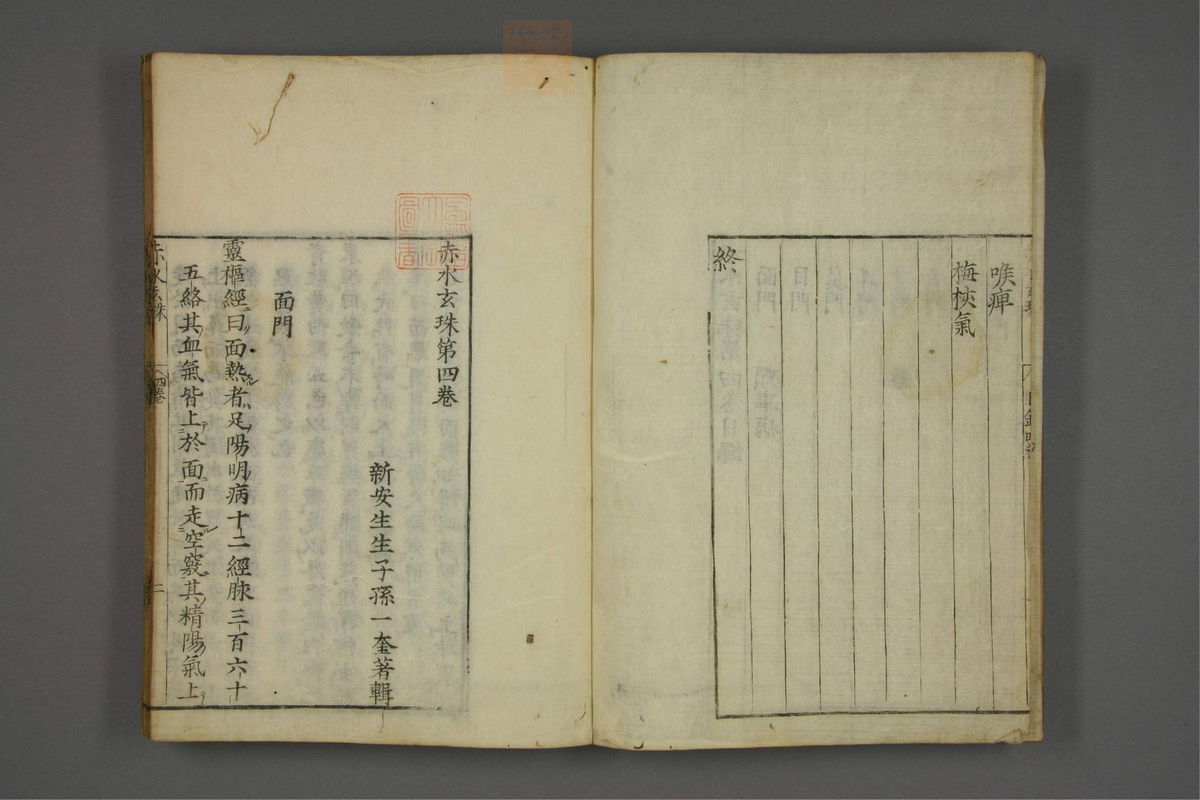 喉痺
梅核氣
終
赤水玄珠第四卷
新安生生子孫一奎著輯
面門
靈樞經曰面熱者足陽明病十二經脉三百六十
五絡其血氣皆上於面而走空竅其精陽氣上
赤水玄珠
四卷
一